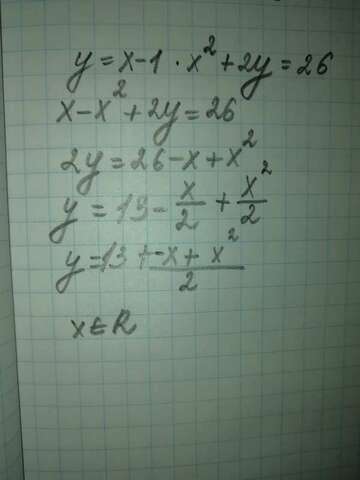 y = x - 1 · x² + 2y = 26
x - x² + 2y = 26
2y = 26 - x + x²
y = 13 - x/2 + x²/2
y = 13 + -x + x²/2
x ∈ R